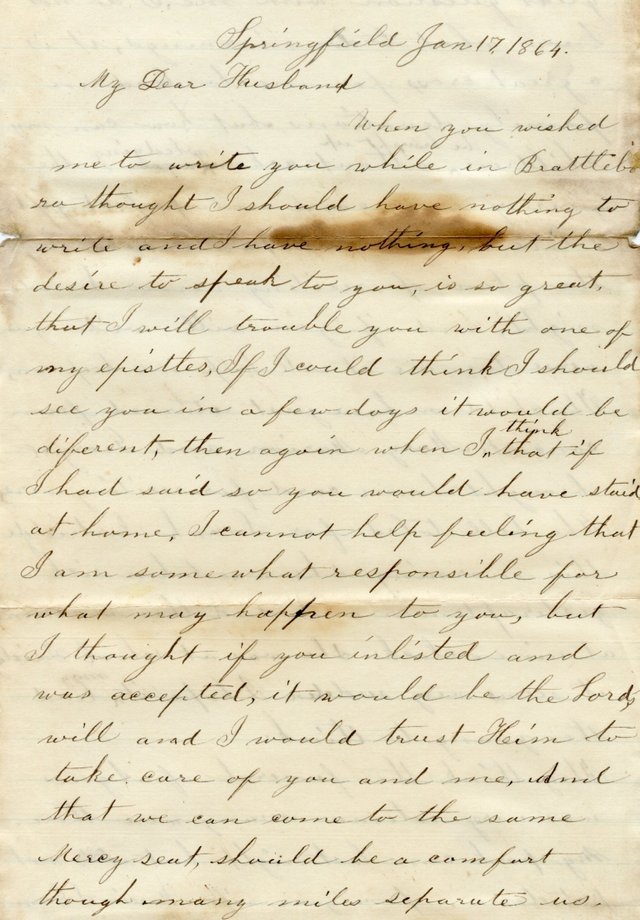 Springfield Jan 17, 1864.
My Dear Husband
When you wished
me to write you while in Brattlebo
ro thought I should have nothing to
write and I have nothing, but the
desire to speak to you, is so great,
that I will trouble you with one of
my epistles, If I could think I should
see you in a few days it would be
diferent, then again when I think that if
I had said so you would have staid
at home, I cannot help feeling that
I am somewhat responsible for
what may happen to you, but
I thought if you inlisted and
was accepted, it would be the Lords
will and I would trust Him to
take care of you and me, And
that we can come to the same
Mercy seat, should be a comfort
though many miles separate us.